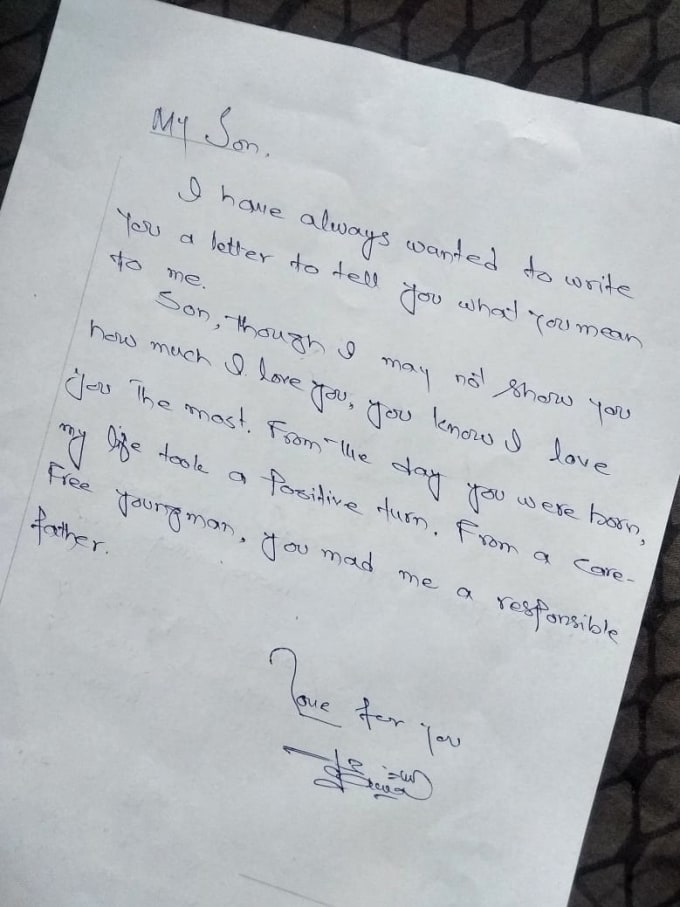 My Son,
I have always wanted to write
you a letter to tell you what you mean
to me.
Son, though I may not show you
how much I love you, you know I love
you the most. From the day you were born,
my life took a positive turn. From a care-
free youngman, you mad me a responsible
father.
Love for you